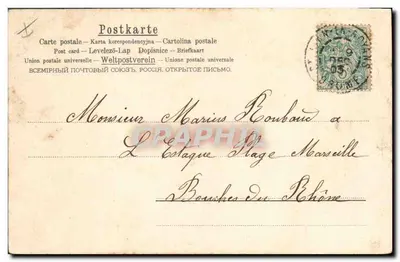 Postkarte
Carte postale — Karta korespondencyjna — Cartolina postale
Post card — Levelező-Lap Dopisnice — Briefkaart
Union postale universelle — Weltpostverein — Unione postale universale
ВСЕМІРНЫЙ ПОЧТОВЫЙ СОЮЗЪ, РОССІЯ, ОТКРЫТОЕ ПИСЬМО.
Monsieur Marius Roubaud a
L'Estaque Plage Marseille
Bouches du Rhône